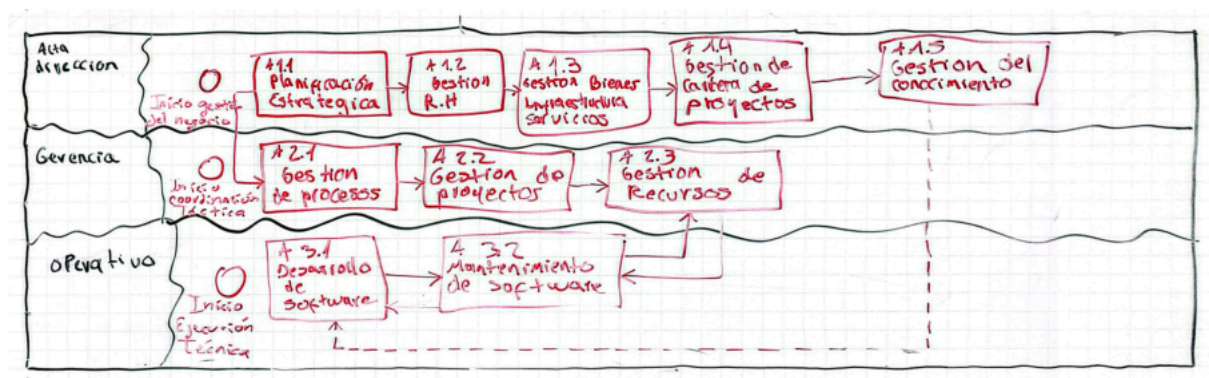 Alta
dirección
Inicio gestión
del negocio
A1.1
Planificación
Estrategica
A 1.2
Gestion
R.H
A 1.3
Gestion Bienes
infraestructura
servicios
A 1.4
Gestion de
cartera de
proyectos
A 1.5
Gestion del
conocimiento
Gerencia
Inicio
coordinación
Táctica
A 2.1
Gestion
de procesos
A 2.2
Gestion de
proyectos
A 2.3
Gestion de
Recursos
operativo
Inicio
Ejecución
Técnica
A 3.1
Desarrollo
de
software
A 3.2
Mantenimiento
de software